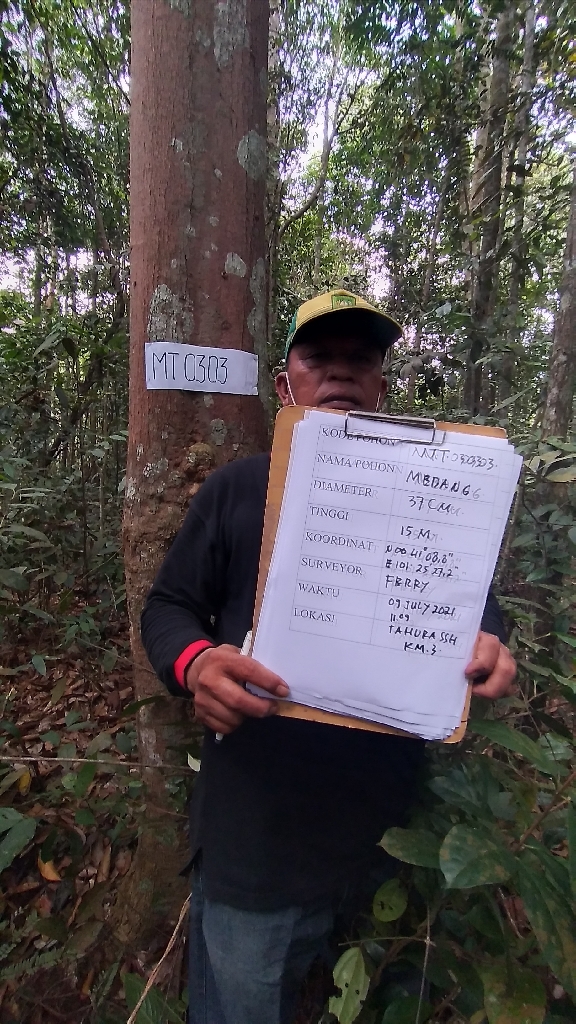 MT 0303
KODE POHON MT 0303
NAMA POHON MEDANG
DIAMETER 37 CM
TINGGI 15 M
KOORDINAT N 00 41' 08,8"
E 101 25' 27,2"
SURVEYOR FERRY
WAKTU 09 JULY 2021
11.09
LOKASI TAHURA SSH
KM.3